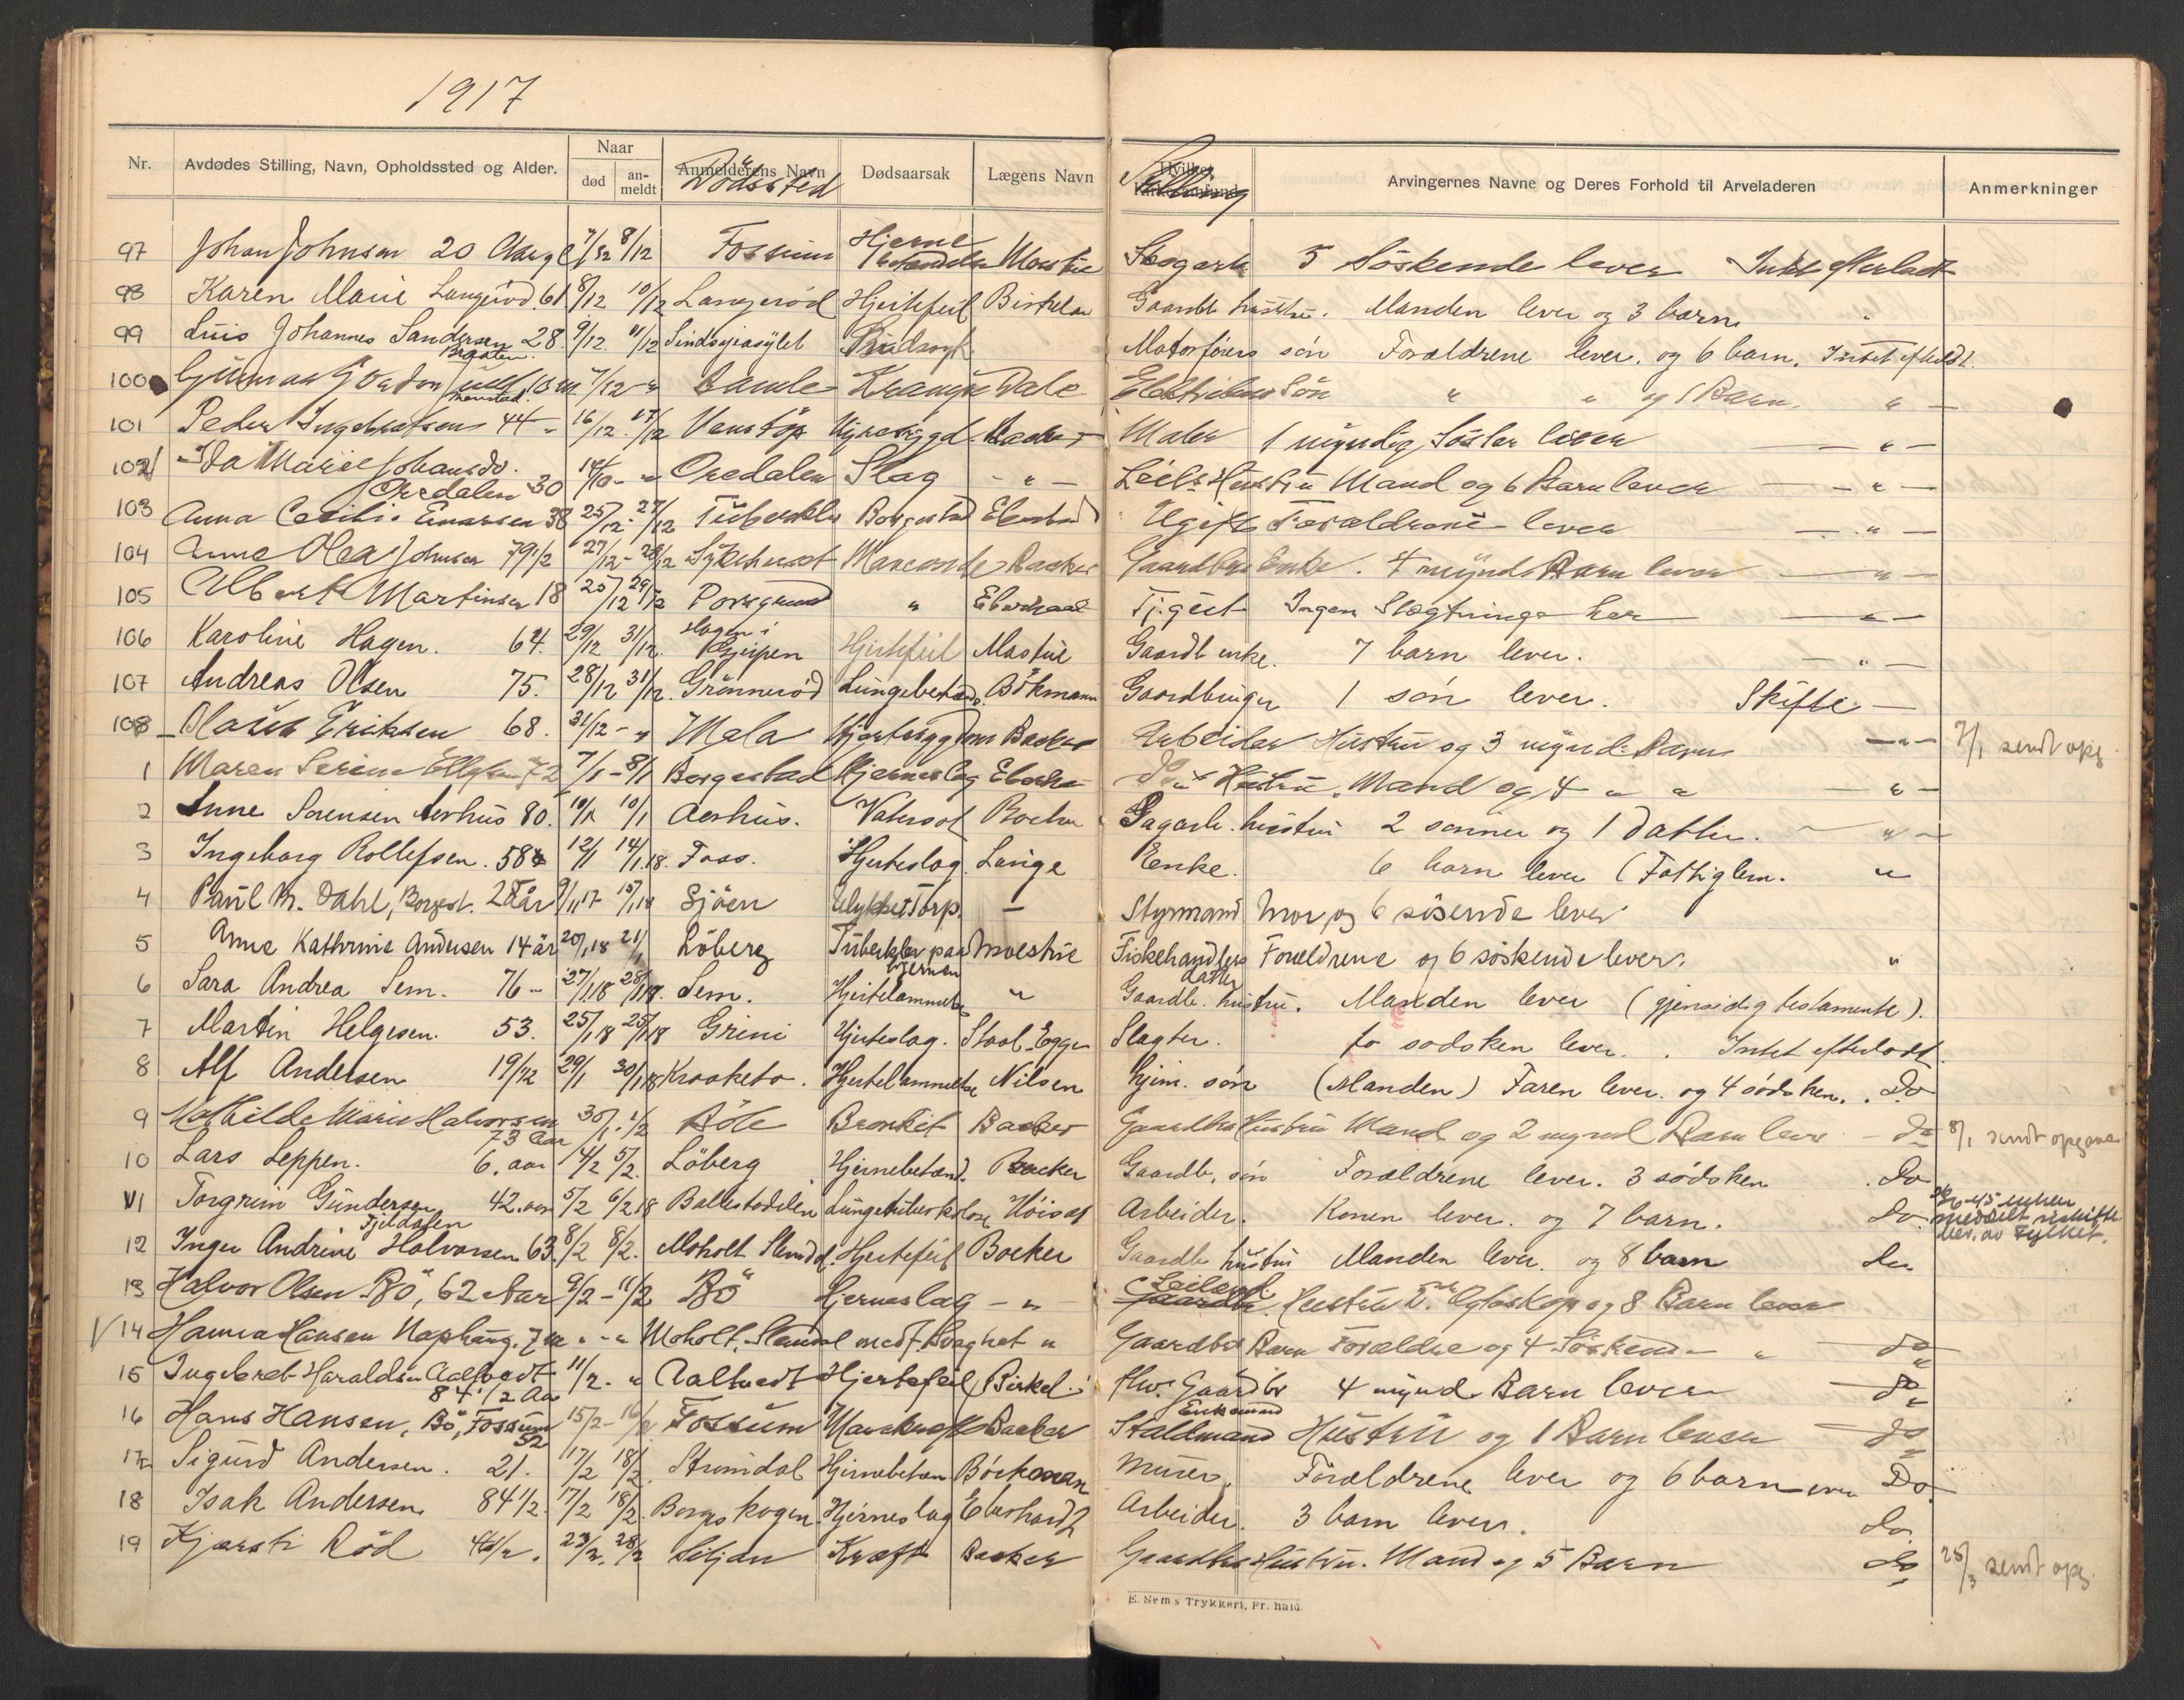 1917
Nr. Avdødes Stilling, Navn, Opholdssted og Alder. Naar død an-meldt Anmelderens Navn Dødssted Dødsaarsak Lægens Navn Hvilket Stilling Arvingernes Navne og Deres Forhold til Arveladeren Anmerkninger
97 Johan Johnsen 20 7/12 8/12 Fossum Hjerne Moestue Skogarb 5 Söskende lever Intet efterladt
98 Karen Marie Langerød. 61 8/12 10/12 Langerød Hjertefeil Birkeland Gaardb hustru. Manden lever og 3 barn "
99 Luis Johannes Sandersen 28. Braaten. 9/12. 11/12 Sindsygeasylet Motorførers søn Forældrene lever. og 6 barn. Intet
100 7/12 - " Bamle Krampe Dale Søn " " og 1 Barn. " —
101 Peder Ingebretsen 44 - 16/12. 17/12 Venstöp Backer Maler 1 myndig Søster lever — " —
102 Ida Marie Johansdr. Oredalen 30 14/10 - " Oredalen Slag - " — Hustru Mand og 6 Barn lever — " —
103 Anna Cecilie Einarsen 38 25/12. 27/12 Tuberkler Borgestad Ugift Forældrene lever — " —
104 Anne Olea Johnsen 79 1/2 27/12 - 28/12 Sykehuset Backer Gaardbr Enke. 4 mynd. Barn lever — " —
105 Albert Martinsen 18 25/12 29/12 Porsgrund " Tj.gut Ingen Slægtninge her — " —
106 Karoline Hagen. 64. 29/12 31/12. Hagen i Gjerpen Hjertefeil Mostue Gaardb enke. 7 barn lever. — " —
107 Andreas Olsen 75. 28/12 31/12. Grønnerød Lungebetænd. Bökmann Gaardbruger 1 søn lever. Skifte —
108 Olaus Eriksen 68. 31/12 - " Mæla Backer Arbeider Hustru og 3 mynd. Barn — " — 7/1 sendt opg.
1 Maren Serine Ellefsen 72 7/1 - 8/1 Borgestad Hjerneslag Do Hustru. Mand og 4 " " — " —
2 Anne Sørensen Aerhus 80. 10/1 10/1 Aerhus. Vatersot Backer Sagarb. hustru 2 sønner og 1 Datter. — " —
3 Ingeborg Rollefsen. 58 12/1 14/1.18. Foss. Hjerteslag. Lange Enke. 6 barn lever (Fattiglem. "
4 Paul M. Dahl, Borgest. 28 år 17 15/1 18 Sjöen Ulykke Torp. — Styrmand Mor og 6 søsende lever
5 Anne Kathrine Andersen 14 år 20/1 18 21/1 Löberg Tuberkler paa hjernen Moestue Fiskehandlers datter Forældrene og 6 søskende lever. "
6 Sara Andrea Sem. 76 - 27/1 18 28/1 18. Sem. Hjertelammelse " Gaardb. hustru. Manden lever (gjensidig testamente).
7 Martin Helgesen. 53. 25/1 18 25/1 18 Grini Hjerteslag. Slagter. to sødsken lever. . Intet efterladt.
8 Alf Andersen 19/12 29/1 30/1 18 Kraaketo. Hjertelammelse Nilsen søn (Manden) Faren lever. og 4 sødsken. . Do
9 Mathilde Marie Halvorsen 73 Aar 30/1. 1/2 Bronkit Backer Gaardbr Hustru Mand og 2 mynd Barn lever - do 8/1 sendt opgave
10 Lars Leppen. 6. aar 4/2 5/2. Löberg Hjernebetænd. Backer Gaardb. søn Forældrene lever. 3 sødsken . Do
11 Torgrim Gundersen 42. aar 5/2 6/2 18 Ballestadelen Lungetuberkolose Høisæt Arbeider. Konen lever. og 7 barn. Do. av Fylket.
12 Inger Andrine Halvorsen 63. Fjeldalen 8/2 8/2. Moholt Slemdal. Hjertefeil Backer Gaardb hustru Manden lever. og 8 barn do
13 Halvor Olsen Bö, 62 Aar 9/2 - 11/2 Bö Hjerneslag - " Hustru og 8 Barn lever
14 Hanna Hansen 7 m " - " Moholt, Slemdal medf. Svaghet " Gaardbr Barn Forældre og 4 Söskende " do
15 Ingebret Haraldsen Aaltvedt 84 1/2 Aar 11/2. " Aaltvedt Hjertefeil Birkel. Gaardbr Enkemand 4 mynd. Barn lever do
16 Hans Hansen, Bö, Fossum 52 15/2 - 16/2 Fossum Backer Staldmand Hustru og 1 Barn lever do
17 Sigurd Andersen. 21. 17/2 18/2. Strømdal Hjernebetæn Böckman Murer. Forældrene lever og 6 barn Do
18 Isak Andersen 84 1/2. 17/2 18/2. Borgeskogen. Hjerneslag Eberhardt Arbeider. 3 barn lever. do.
19 Kjersti Röd 46 1/2. 23/2. 28/2 Siljan Kræft Backer Gaardbr Hustru. Mand og 5 Barn do 25/3 sendt opg.
E. Sems Trykkeri, Fr.hald.